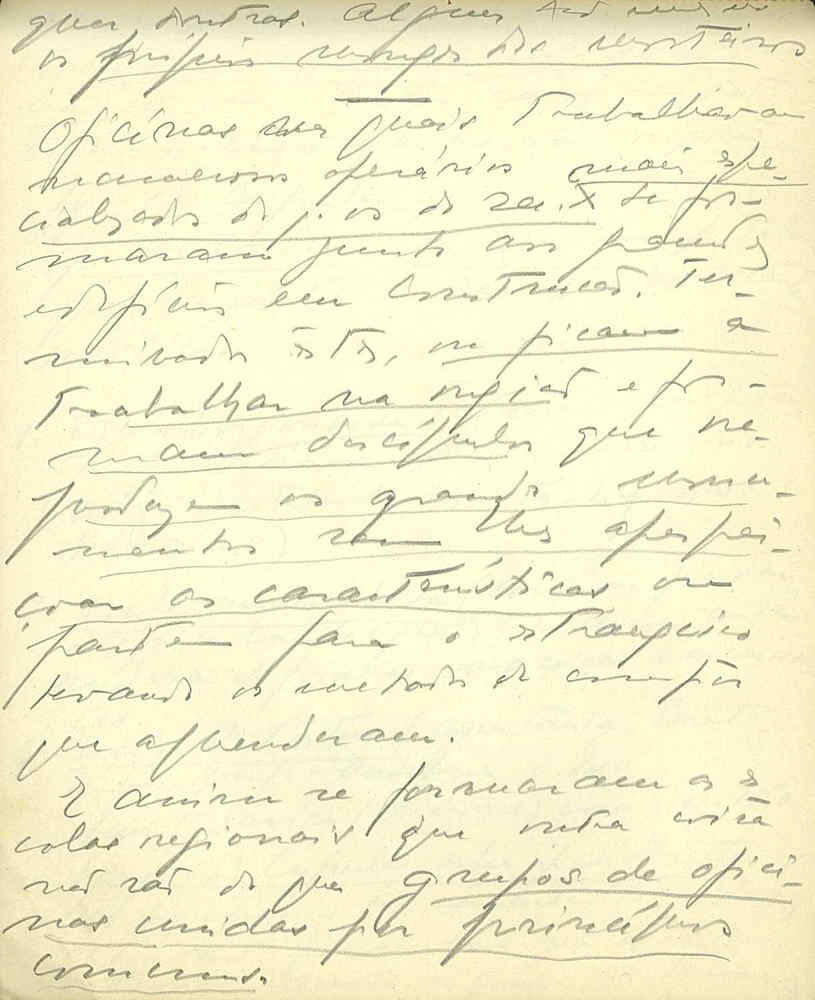 quer doutras. Alguns são mesmo
os próprios monges dos mosteiros
Oficinas nas quais Trabalhavam
numerosos operários mais espe-
cializados do q. os do sec. X se for-
maram junto aos grandes
edifícios em construção. Ter-
minados êstes, ou ficam a
trabalhar na região e for-
mam discípulos que re-
produzem os grandes monu-
mentos sem lhes aperfei-
çoar as características ou
partem para o estrangeiro
levando os metodos de
que aprenderam.
E assim se formaram as es
colas regionais que outra coisa
não são do que grupos de ofici-
nas unidas por princípios
comuns.